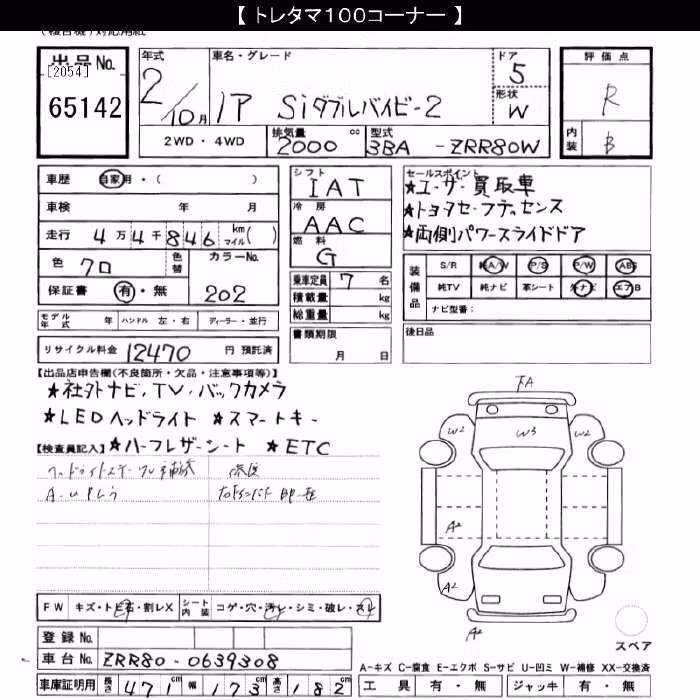 【 トレタマ100コーナー 】
出品No.
[2054]
65142
年式
2/10月
車名・グレード
ノア Siダブルバイビー2
ドア
5
形状
W
評価点
R
内装
B
2WD・4WD
排気量
2000 cc
型式
3BA -ZRR80W
車歴 自家用・( )
車検 年 月
走行 4万4千846 km マイル( )
色 クロ 色替
カラーNo. 202
保証書 有・無
シフト
IAT
冷房
AAC
燃料
G
乗車定員 7 名
積載量 kg
総重量 kg
セールスポイント
★ユーザー買取車
★トヨタセーフティセンス
★両側パワースライドドア
装備品
S/R 純A/W P/S P/W ABS
純TV 純ナビ 革シート 外ナビ エアB
ナビ型番:
モデル年式 年 ハンドル 左・右 ディーラー・並行
リサイクル料金 12470 円 預託済
書類期限
月 日
後日品
【出品店申告欄(不良箇所・欠品・注意事項等)】
★社外ナビ、TV、バックカメラ
★LEDヘッドライト ★スマートキー
★ハーフレザーシート ★ETC
【検査員記入】
FA
W2 W3 W2
A2
A2
A2
FW キズ・トビ石・割レX シート内装 コゲ・穴・汚レ・シミ・破レ・スレ
登録No.
車台No. ZRR80-0639308
車庫証明用 長さ 471 cm 幅 173 cm 高さ 182 cm
スペア
A-キズ C-腐食 E-エクボ S-サビ U-凹ミ W-補修 XX-交換済
工具 有・無 ジャッキ 有・無